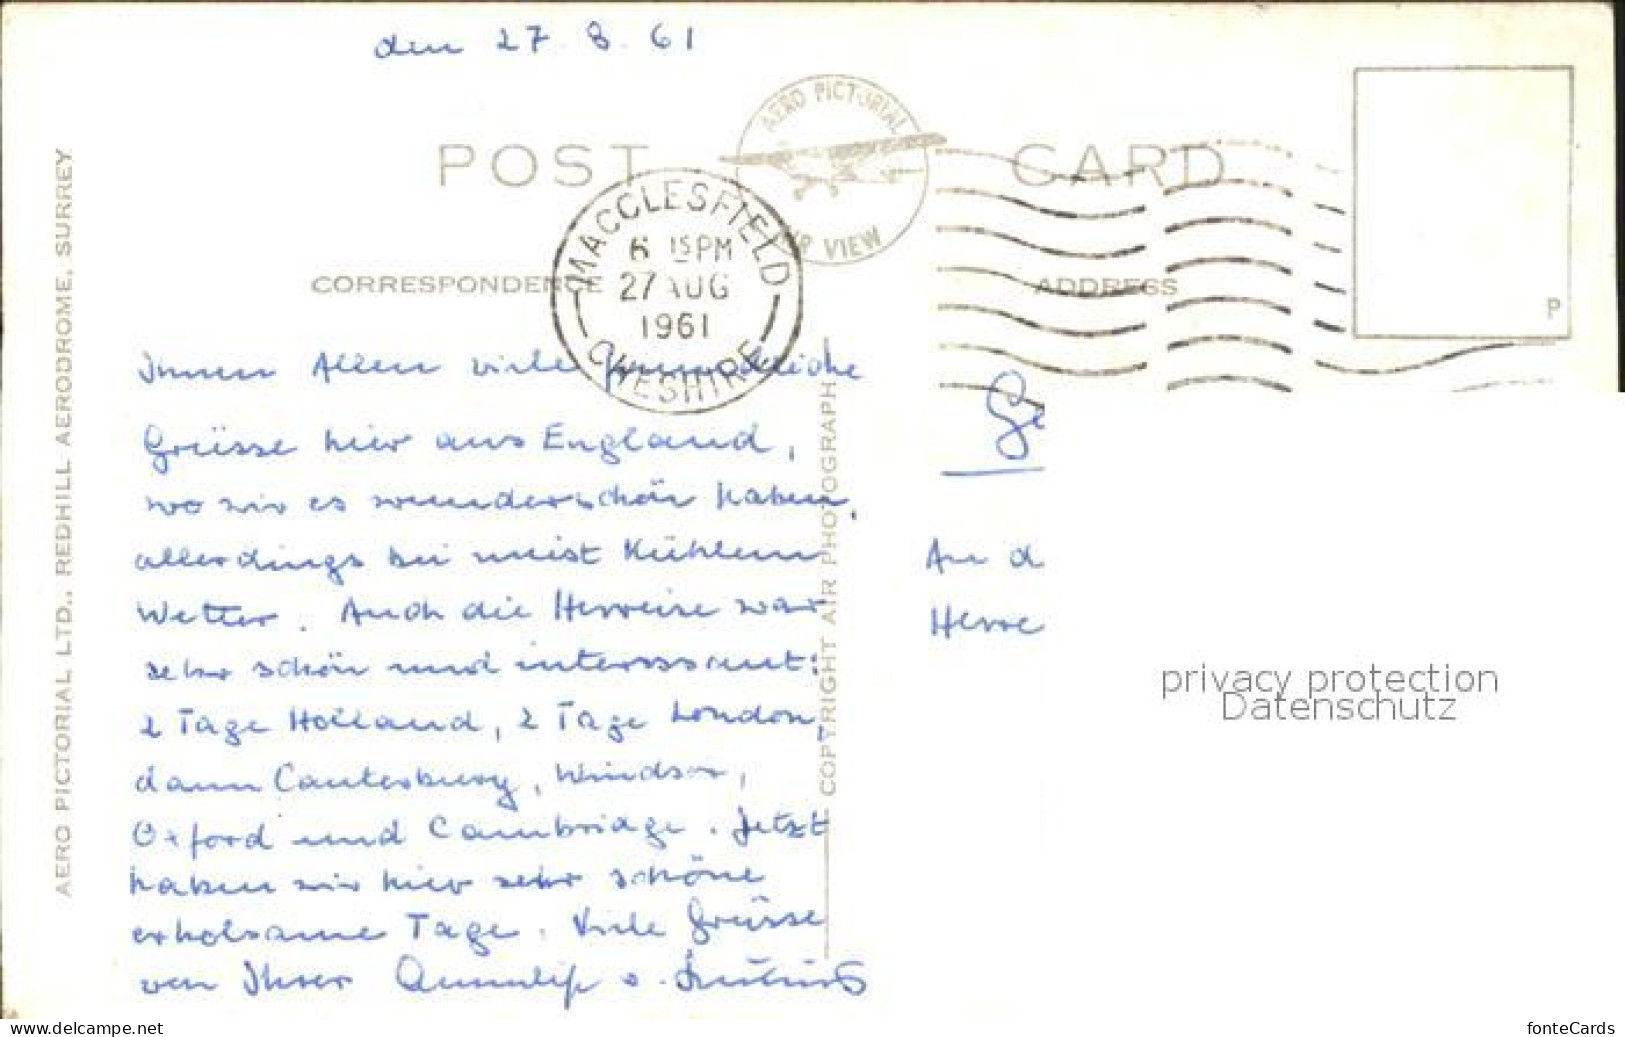 den 27. 8. 61
AERO PICTORIAL
AIR VIEW
POST CARD
MACCLESFIELD
6 15 PM
27 AUG
1961
CHESHIRE
CORRESPONDENCE
ADDRESS
P
AERO PICTORIAL LTD., REDHILL AERODROME, SURREY
COPYRIGHT AIR PHOTOGRAPH
Ihnen Allen viele freundliche
Grüsse hier aus England,
wo wir es wunderschön haben,
allerdings bei meist kühlem
Wetter. Auch die Herreise war
sehr schön und interessant:
2 Tage Holland, 2 Tage London,
dann Canterbury, Windsor,
Oxford und Cambridge. Jetzt
haben wir hier sehr schöne
erholsame Tage. Viele Grüsse
von Ihrer
Ge
An d
Herre
privacy protection
Datenschutz
www.delcampe.net
fonteCards